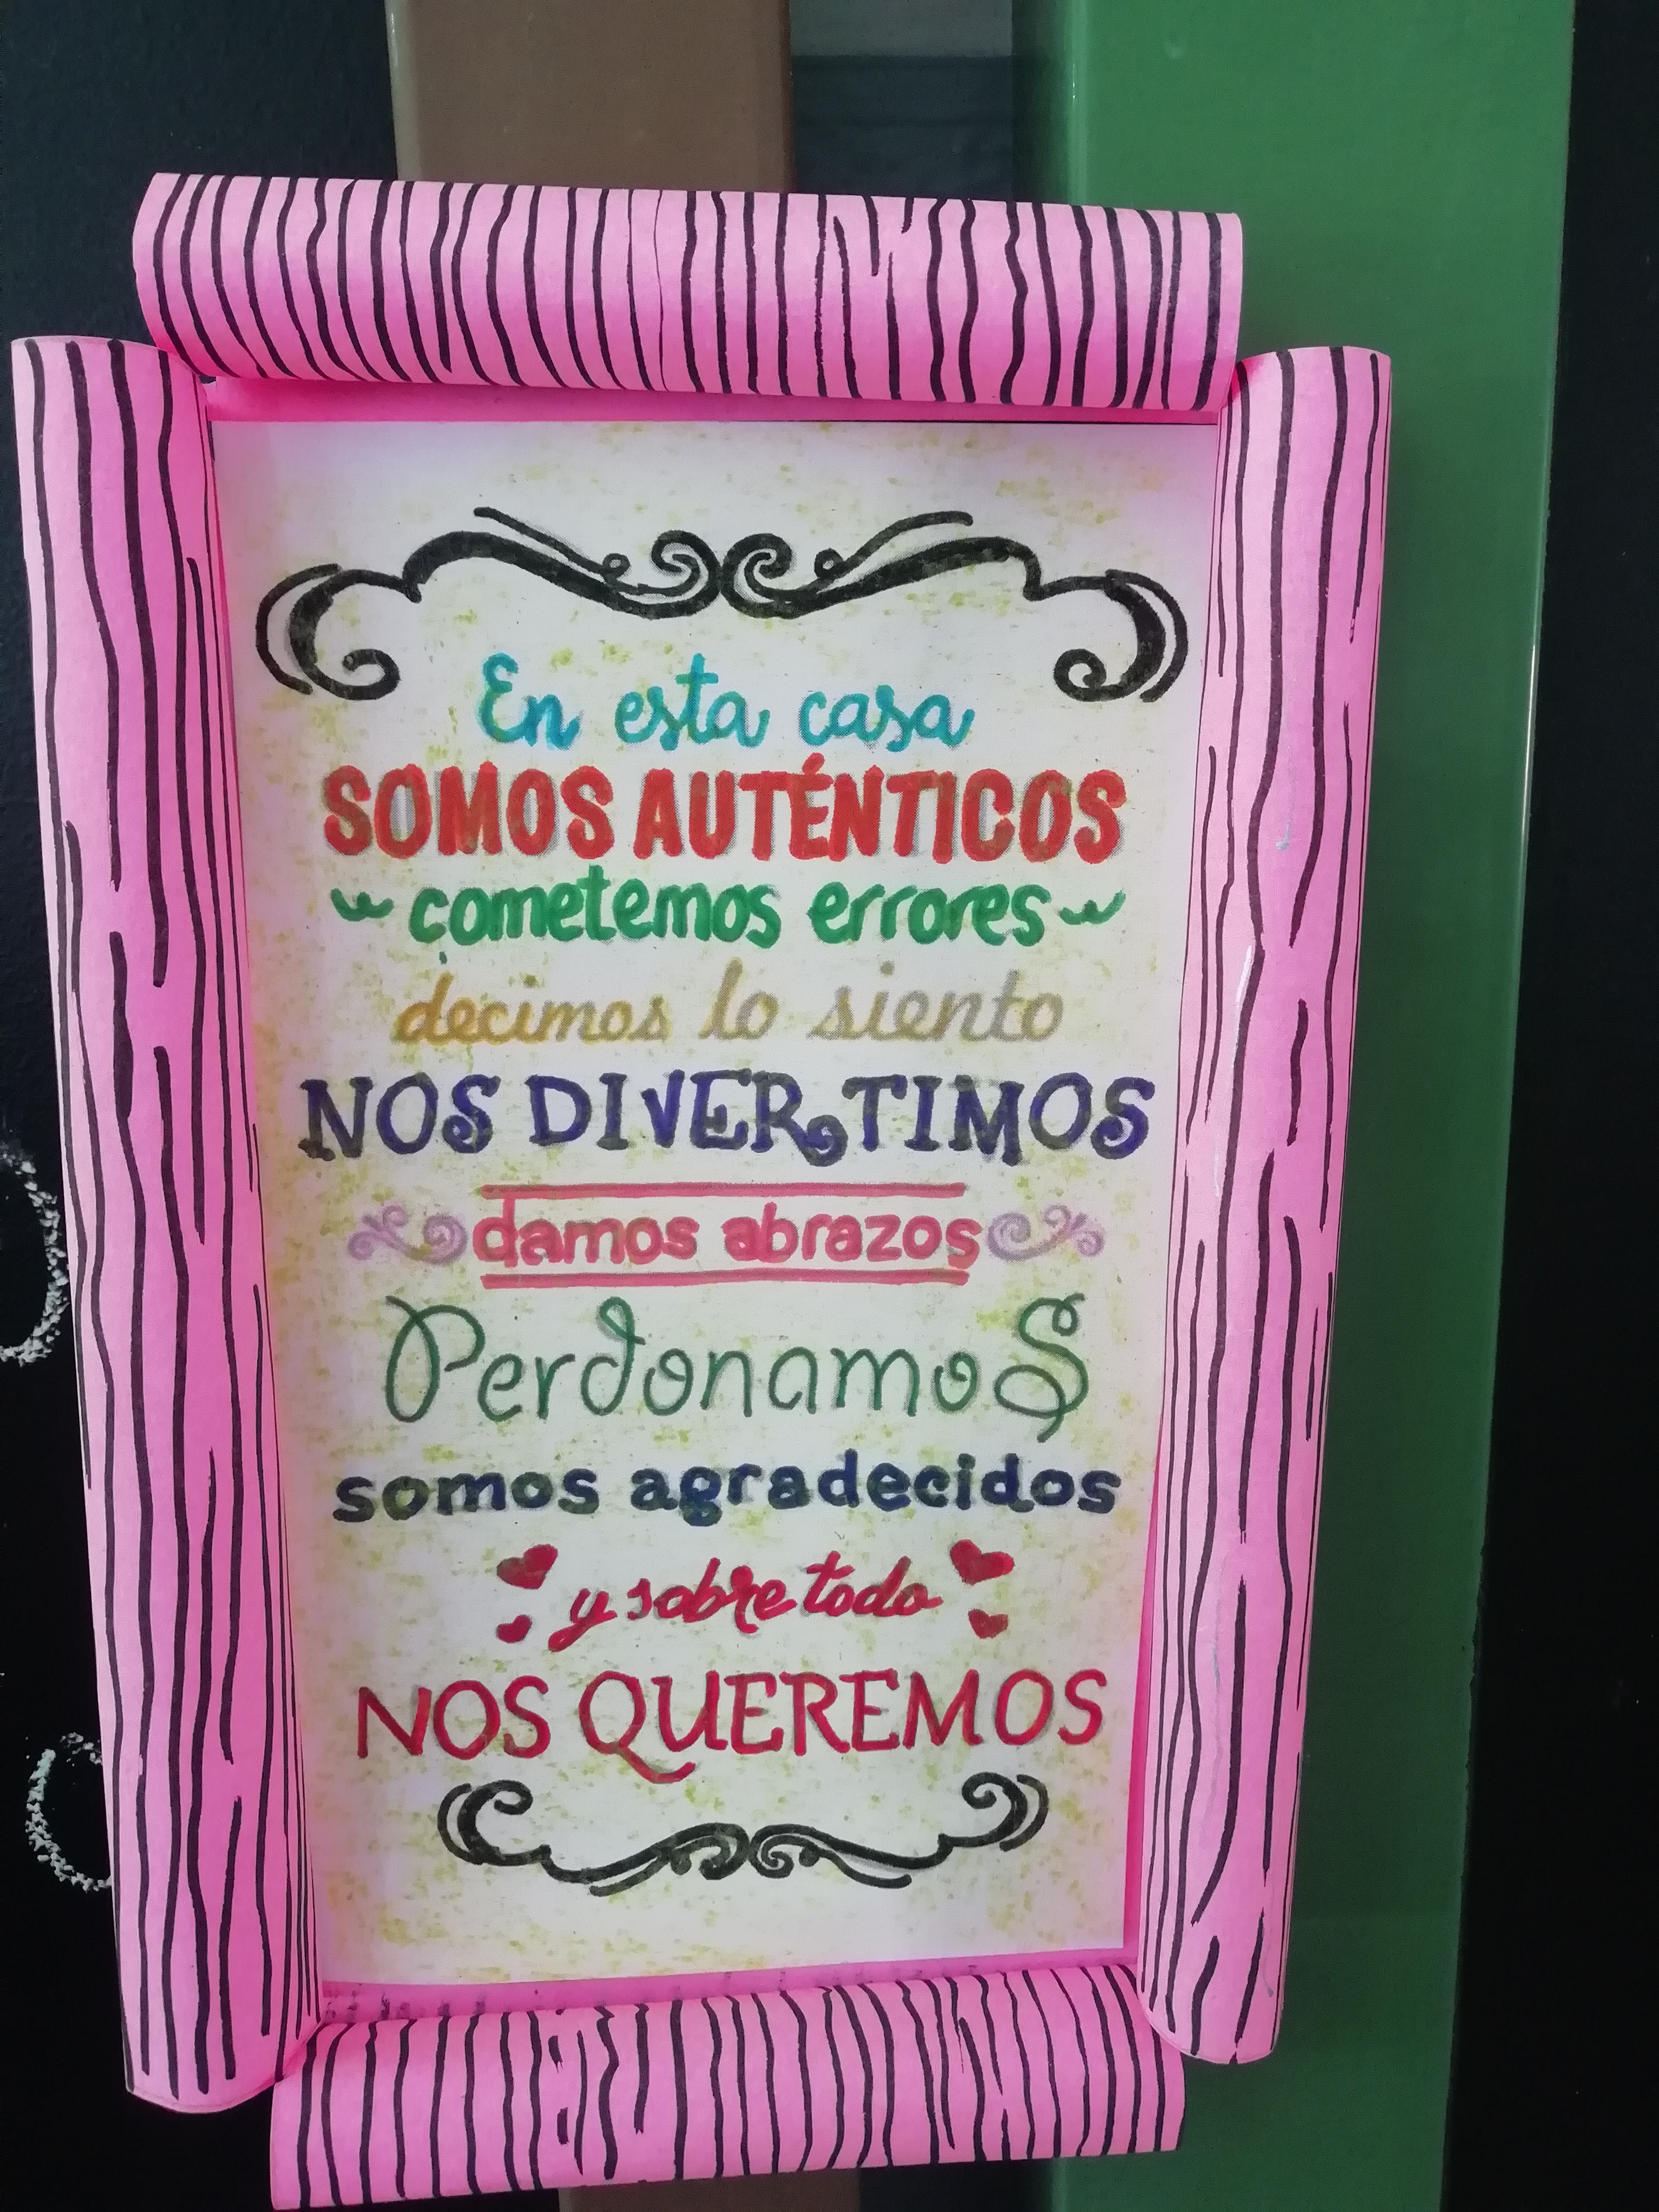 En esta casa
SOMOS AUTÉNTICOS
cometemos errores
decimos lo siento
NOS DIVERTIMOS
damos abrazos
PerdonamoS
somos agradecidos
y sobre todo
NOS QUEREMOS